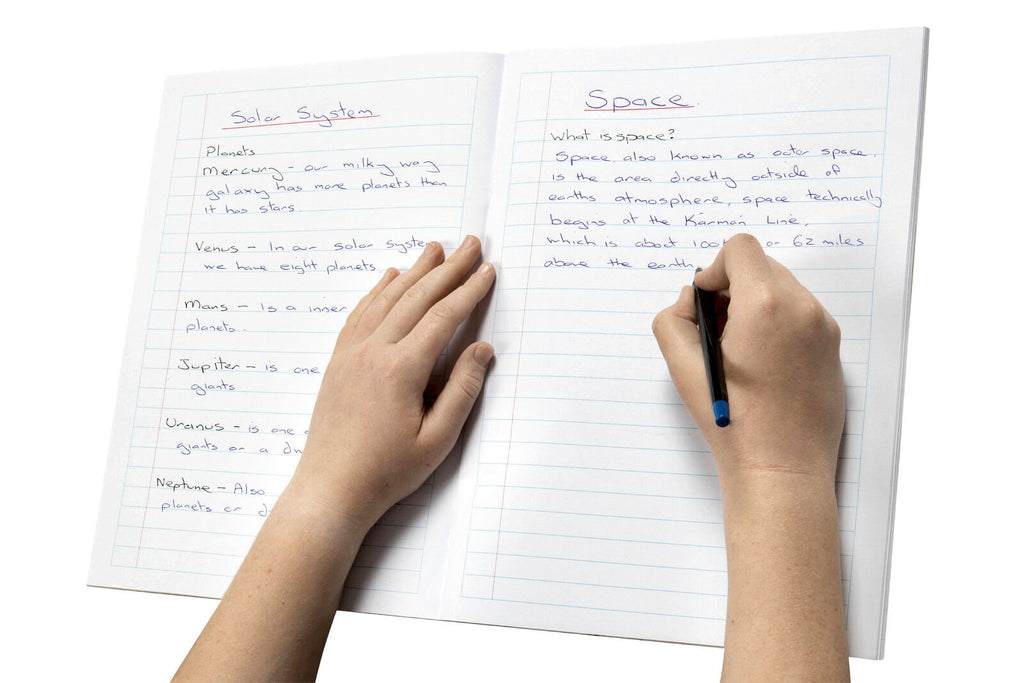 Solar System
Planets
Mercury - our milky way
galaxy has more planets then
it has stars.
Venus - In our solar system
we have eight planets.
Mars - Is a inner
planets.
Jupiter - is one
giants
Uranus - is one
giants or a
Neptune - Also
planets or
Space.
What is space?
Space, also known as outer space,
is the area directly outside of
earths atmosphere, space technically
begins at the Kármán Line,
which is about or 62 miles
above the earth